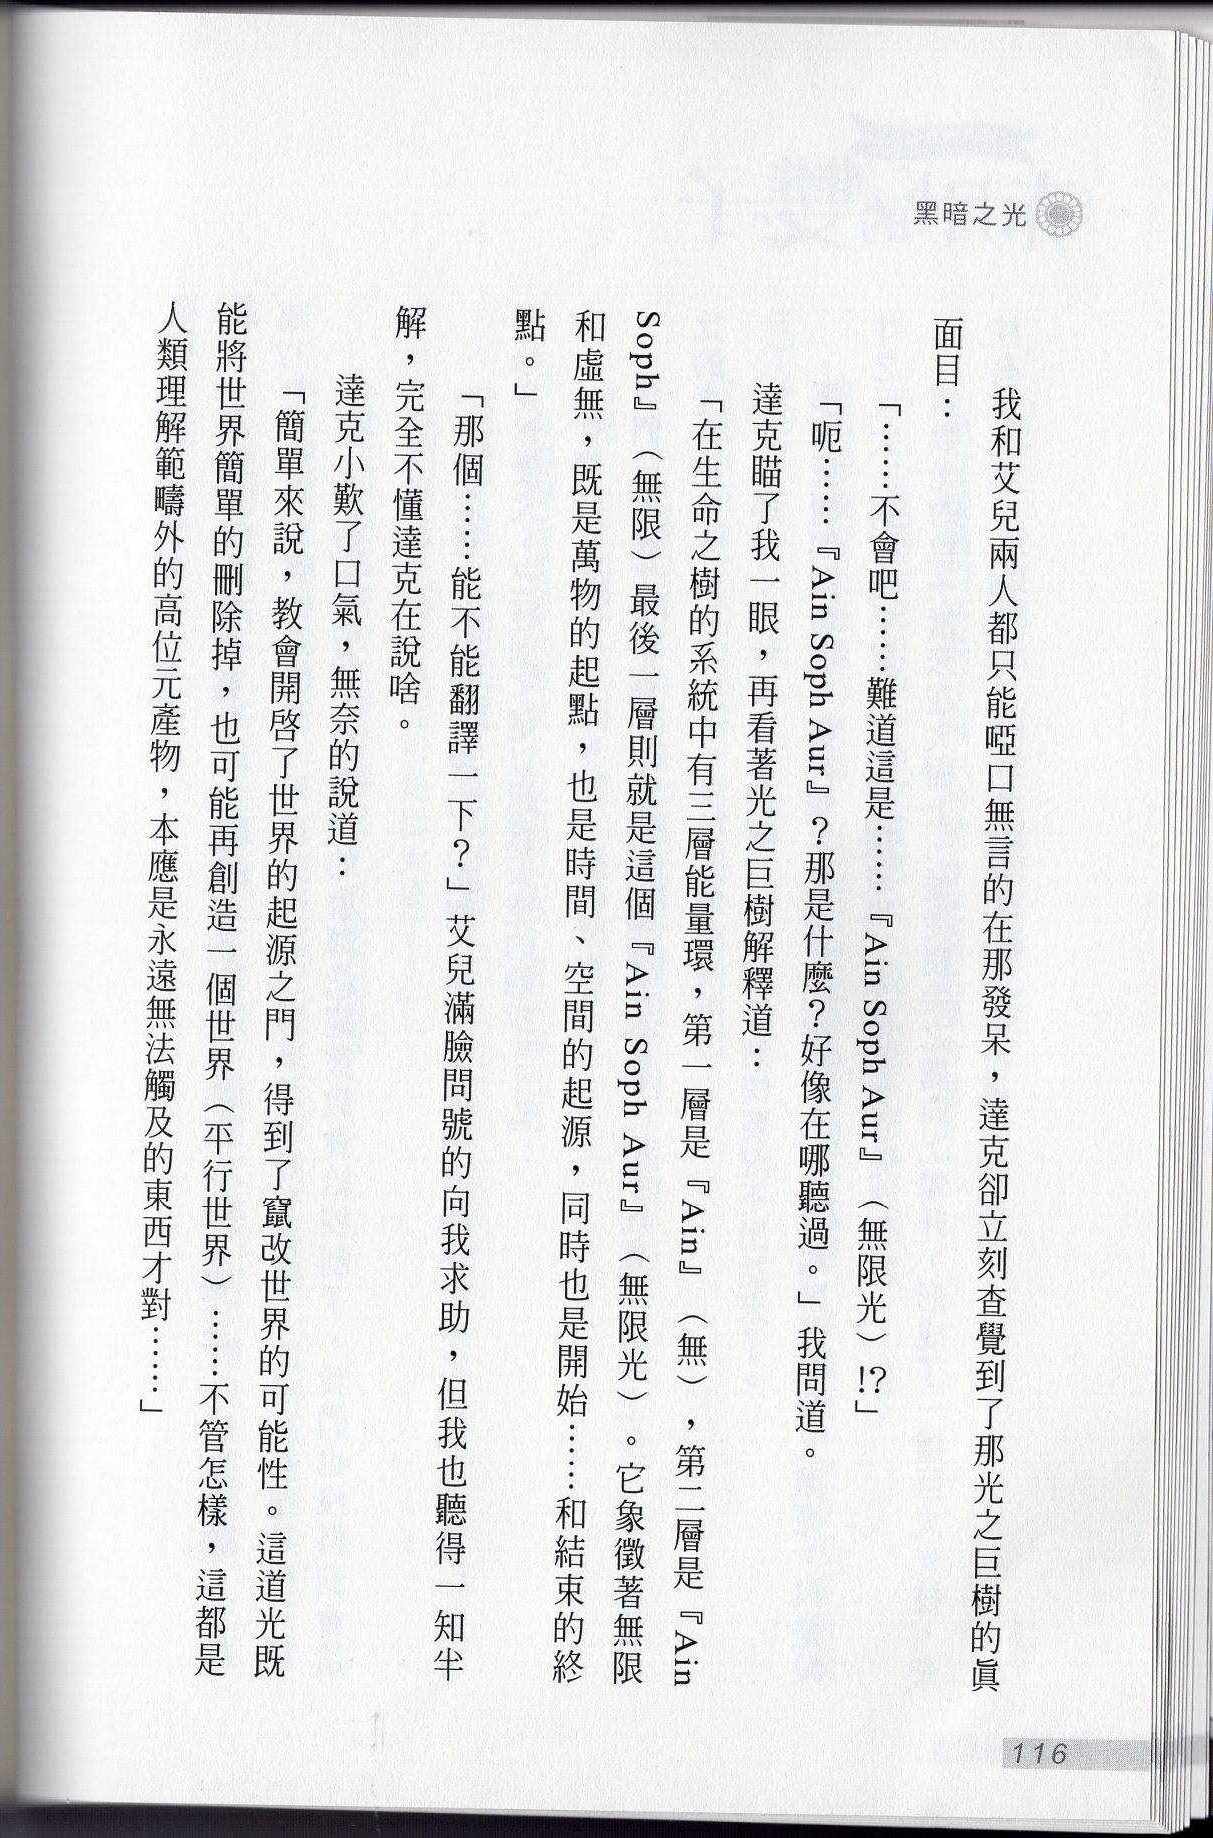 黑暗之光
我和艾兒兩人都只能啞口無言的在那發呆，達克卻立刻查覺到了那光之巨樹的真
面目：
「……不會吧……難道這是……『Ain Soph Aur』（無限光）!?」
「呃……『Ain Soph Aur』？那是什麼？好像在哪聽過。」我問道。
達克瞄了我一眼，再看著光之巨樹解釋道：
「在生命之樹的系統中有三層能量環，第一層是『Ain』（無），第二層是『Ain
Soph』（無限）最後一層則就是這個『Ain Soph Aur』（無限光）。它象徵著無限
和虛無，既是萬物的起點，也是時間、空間的起源，同時也是開始……和結束的終
點。」
「那個……能不能翻譯一下？」艾兒滿臉問號的向我求助，但我也聽得一知半
解，完全不懂達克在說啥。
達克小歎了口氣，無奈的說道：
「簡單來說，教會開啓了世界的起源之門，得到了竄改世界的可能性。這道光既
能將世界簡單的刪除掉，也可能再創造一個世界（平行世界）……不管怎樣，這都是
人類理解範疇外的高位元產物，本應是永遠無法觸及的東西才對……」
116